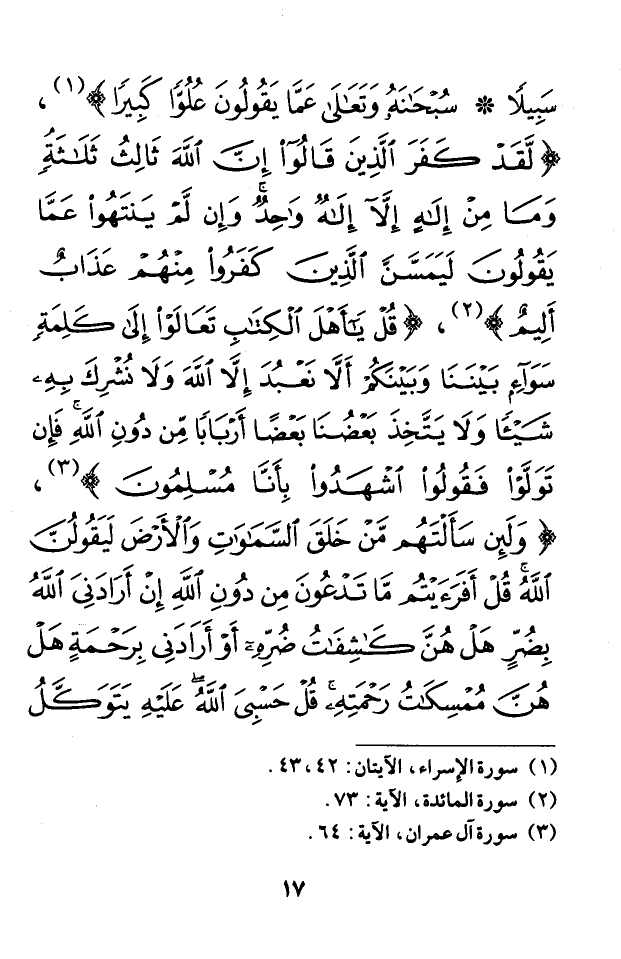 سَبِيلًا * سُبْحَانَهُ وَتَعَالَىٰ عَمَّا يَقُولُونَ عُلُوًّا كَبِيرًا ﴾(١)،
﴿ لَّقَدْ كَفَرَ الَّذِينَ قَالُوٓا إِنَّ اللَّهَ ثَالِثُ ثَلَاثَةٍ
وَمَا مِنْ إِلَٰهٍ إِلَّآ إِلَٰهٌ وَاحِدٌ ۚ وَإِن لَّمْ يَنتَهُوا عَمَّا
يَقُولُونَ لَيَمَسَّنَّ الَّذِينَ كَفَرُوا مِنْهُمْ عَذَابٌ
أَلِيمٌ ﴾(٢)، ﴿ قُلْ يَٰٓأَهْلَ الْكِتَٰبِ تَعَالَوْا إِلَىٰ كَلِمَةٍ
سَوَآءٍ بَيْنَنَا وَبَيْنَكُمْ أَلَّا نَعْبُدَ إِلَّا اللَّهَ وَلَا نُشْرِكَ بِهِۦ
شَيْـًٔا وَلَا يَتَّخِذَ بَعْضُنَا بَعْضًا أَرْبَابًا مِّن دُونِ اللَّهِ ۚ فَإِن
تَوَلَّوْا فَقُولُوا اشْهَدُوا بِأَنَّا مُسْلِمُونَ ﴾(٣)،
﴿ وَلَئِن سَأَلْتَهُم مَّنْ خَلَقَ السَّمَٰوَٰتِ وَالْأَرْضَ لَيَقُولُنَّ
اللَّهُ ۚ قُلْ أَفَرَءَيْتُم مَّا تَدْعُونَ مِن دُونِ اللَّهِ إِنْ أَرَادَنِيَ اللَّهُ
بِضُرٍّ هَلْ هُنَّ كَٰشِفَٰتُ ضُرِّهِۦٓ أَوْ أَرَادَنِي بِرَحْمَةٍ هَلْ
هُنَّ مُمْسِكَٰتُ رَحْمَتِهِۦ ۚ قُلْ حَسْبِيَ اللَّهُ ۖ عَلَيْهِ يَتَوَكَّلُ
(١) سورة الإسراء، الآيتان: ٤٢، ٤٣.
(٢) سورة المائدة، الآية: ٧٣.
(٣) سورة آل عمران، الآية: ٦٤.
١٧